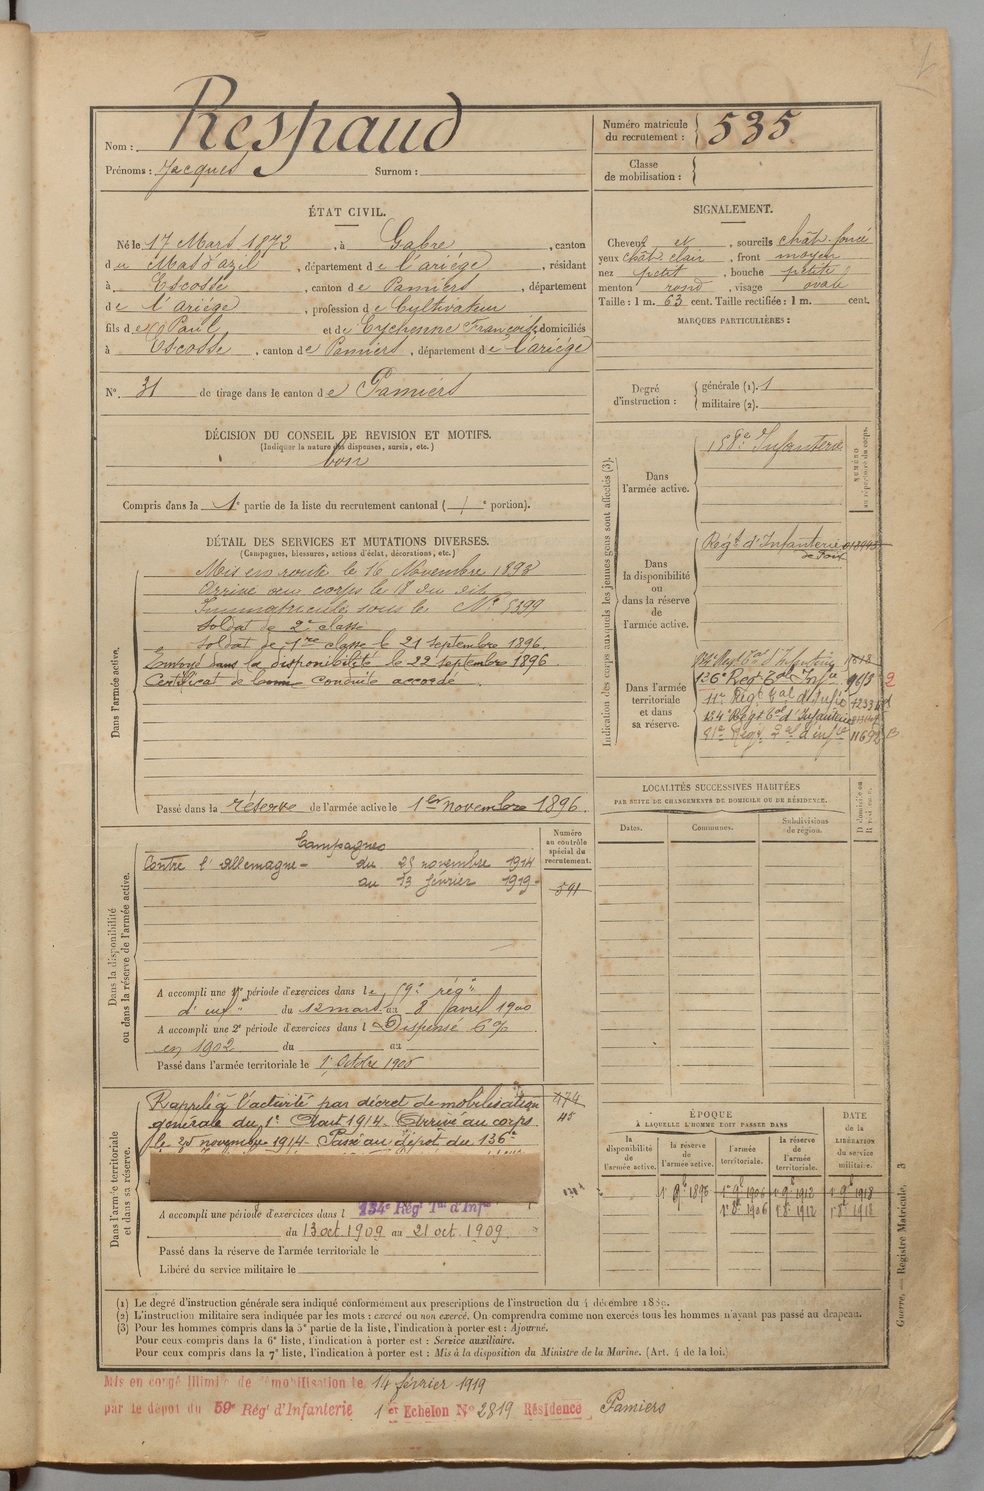 Nom : Respaud
Prénoms : Jacques Surnom :
Numéro matricule du recrutement : 535
Classe de mobilisation :
ÉTAT CIVIL.
Né le 17 Mars 1872, à Gabre, canton
du Mas d'azil, département de l'ariège, résidant
à Escosse, canton de Pamiers, département
de l'ariège, profession de Cultivateur
fils de Paul et de Eychenne Françoise, domiciliés
à Escosse, canton de Pamiers, département de l'ariège
N° 31 de tirage dans le canton de Pamiers
DÉCISION DU CONSEIL DE REVISION ET MOTIFS.
(Indiquer la nature des dispenses, sursis, etc.)
bon
Compris dans la 1e partie de la liste du recrutement cantonal ( e portion).
DÉTAIL DES SERVICES ET MUTATIONS DIVERSES.
(Campagnes, blessures, actions d'éclat, décorations, etc.)
Dans l'armée active.
Mis en route le 16 Novembre 1893
Arrivé au corps le 18 du dit
Immatriculé sous le N° 5399
Soldat de 2e classe
Soldat de 1re classe le 21 septembre 1896.
Envoyé dans la disponibilité le 22 septembre 1896.
Certificat de bonne conduite accordé
Passé dans la réserve de l'armée active le 1er novembre 1896.
Dans la disponibilité ou dans la réserve de l'armée active.
Campagnes
Contre l'Allemagne - du 25 novembre 1914
au 13 février 1919
Numéro au contrôle spécial du recrutement.
591
A accompli une 1re période d'exercices dans le 59e régt
d'inf du 12 mars au 8 avril 1900
A accompli une 2e période d'exercices dans l Dispensé
en 1902 du au
Passé dans l'armée territoriale le 1 Octobre 1906
Dans l'armée territoriale et dans sa réserve.
Rappelé à l'activité par décret de mobilisation
générale du 1er Août 1914. Arrivé au corps
le 25 novembre 1914. Passé au dépôt du 136e
45
134e Régt Tal d'Infie
A accompli une période d'exercices dans l
du 13 oct. 1909 au 21 oct. 1909
Passé dans la réserve de l'armée territoriale le
Libéré du service militaire le
SIGNALEMENT.
Cheveux et, sourcils chât. foncé
yeux chât clair, front moyen
nez petit, bouche petite
menton rond, visage ovale
Taille : 1 m. 63 cent. Taille rectifiée : 1 m. cent.
MARQUES PARTICULIÈRES :
Degré d'instruction : générale (1). 1
militaire (2).
Indication des corps auxquels les jeunes gens sont affectés (3).
NUMÉRO au répertoire du corps.
Dans l'armée active. 158e Infanterie
Dans la disponibilité ou dans la réserve de l'armée active. Régt d'Infanterie de Foix
Dans l'armée territoriale et dans sa réserve.
136e Regt Tal Infie
11e Régt Tal d'Infie
134e Régt Tal d'Infanterie
81e Régt Tal d'infie 11692
LOCALITÉS SUCCESSIVES HABITÉES
PAR SUITE DE CHANGEMENTS DE DOMICILE OU DE RÉSIDENCE.
Dates. Communes. Subdivisions de région. D domicile ou R résidence.
ÉPOQUE
À LAQUELLE L'HOMME DOIT PASSER DANS
la disponibilité de l'armée active. la réserve de l'armée active. l'armée territoriale. la réserve de l'armée territoriale.
DATE de la LIBÉRATION du service militaire.
1 9bre 1896 1er 9bre 1906 1er 9bre 1912 1er 9bre 1918
1er 8bre 1906 1er 8bre 1912 1er 8bre 1918
Guerre. — Registre Matricule. 3
(1) Le degré d'instruction générale sera indiqué conformément aux prescriptions de l'instruction du 4 décembre 1889.
(2) L'instruction militaire sera indiquée par les mots : exercé ou non exercé. On comprendra comme non exercés tous les hommes n'ayant pas passé au drapeau.
(3) Pour les hommes compris dans la 5e partie de la liste, l'indication à porter est : Ajourné.
Pour ceux compris dans la 6e liste, l'indication à porter est : Service auxiliaire.
Pour ceux compris dans la 7e liste, l'indication à porter est : Mis à la disposition du Ministre de la Marine. (Art. 4 de la loi.)
Mis en congé illimité de démobilisation le 14 février 1919
par le dépôt du 59e Régt d'Infanterie 1er Echelon N° 2819 Résidence Pamiers